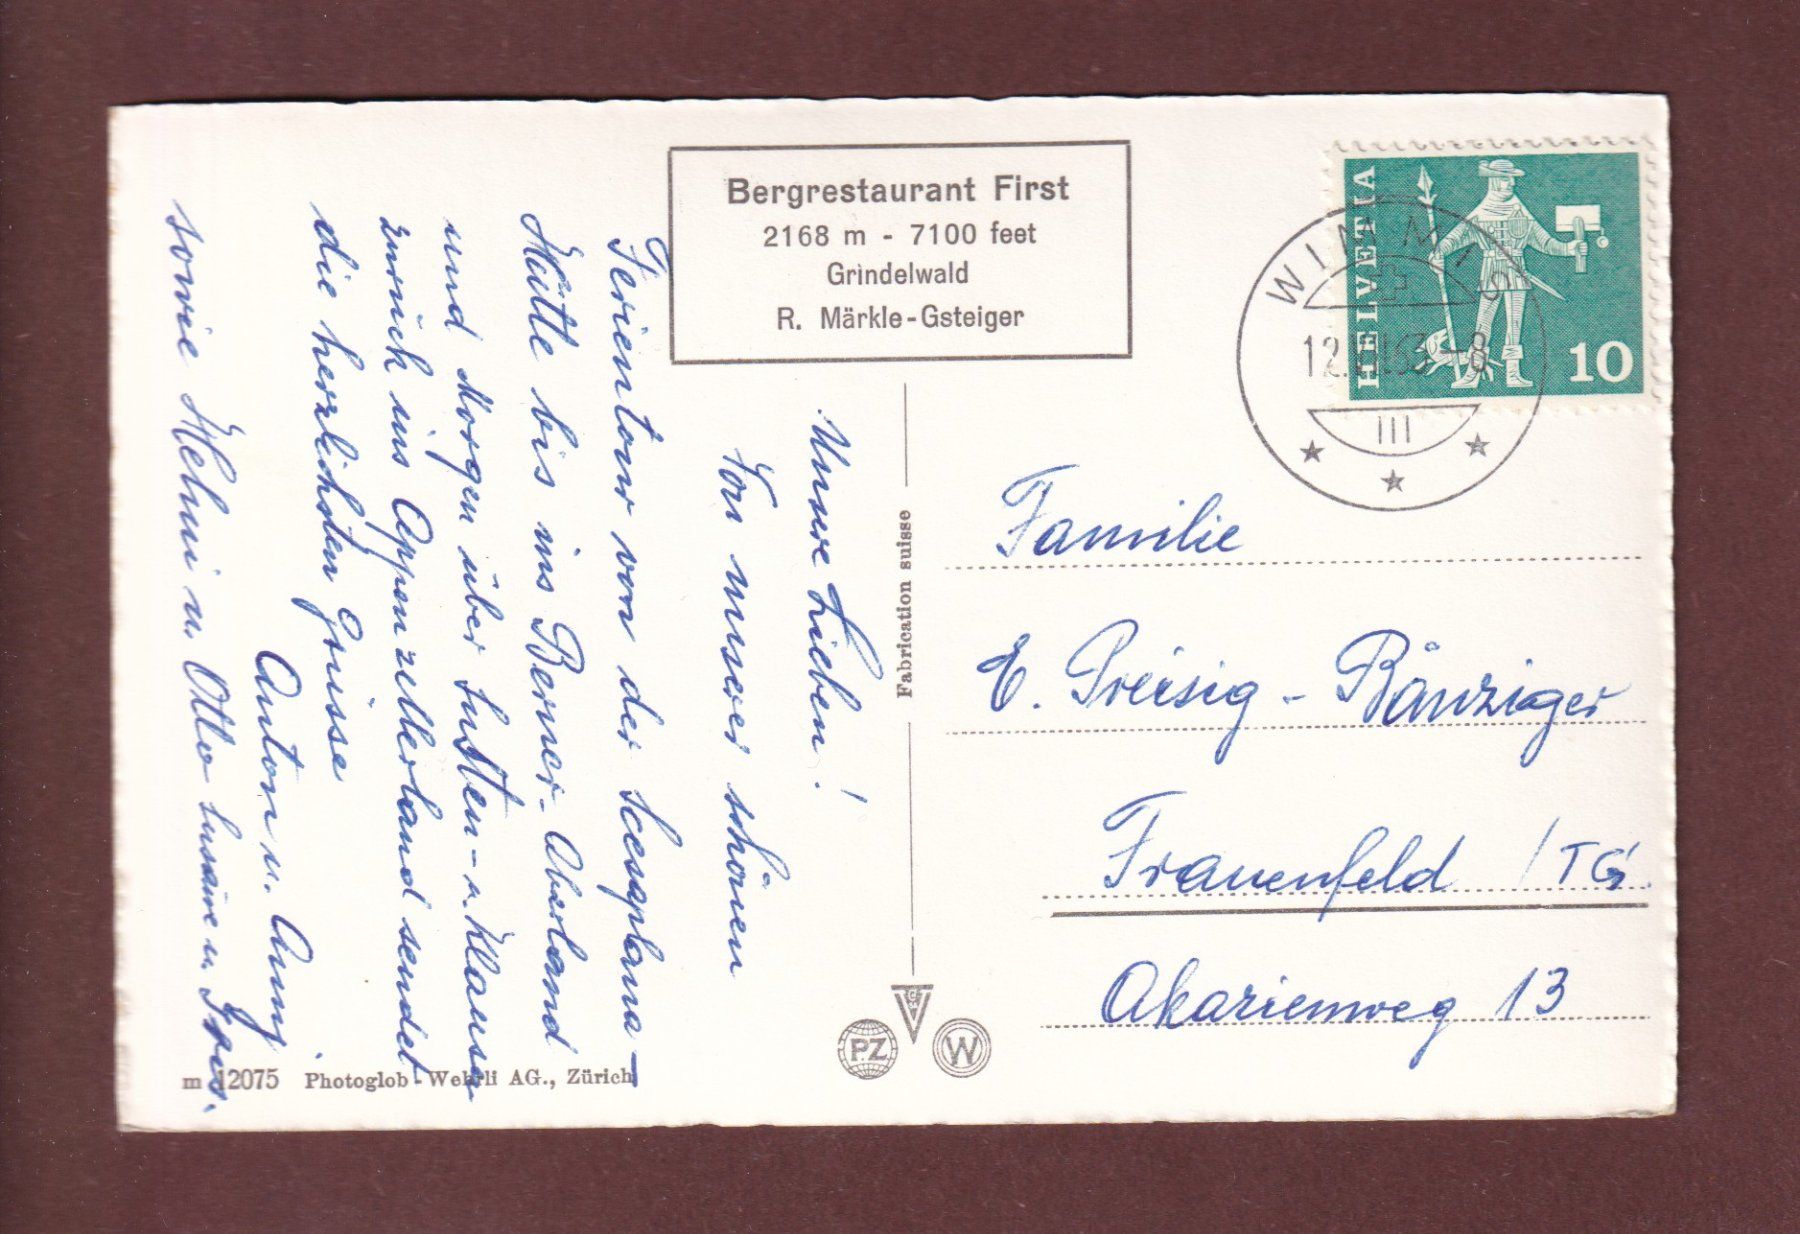 Bergrestaurant First
2168 m - 7100 feet
Grindelwald
R. Märkle-Gsteiger
HELVETIA
10
WIMMIS
12. 63 -8
III
Unsere Lieben!
Von unserer schönen
Ferientour von der Scesaplana-
Hütte bis ins Berner-Oberland
und Morgen über Susten- u. Klausen
zurück ins Appenzellerland sendet
die herzlichsten Grüsse
Anton u. Anny
sowie Helmi u. Otto Susanne u.
Fabrication suisse
Familie
E. Preisig - Bänziger
Frauenfeld / TG.
Akazienweg 13
PZ
W
m 12075 Photoglob-Wehrli AG., Zürich